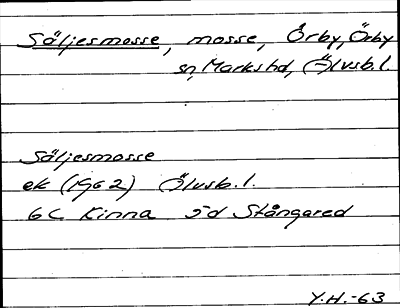 Säljesmosse, mosse, Örby, Örby
sn, Markshd, Älvsb.l.
Säljesmosse
ek (1962) Älvsb.l.
6C Kinna 5d Stångared
Y.H.-63